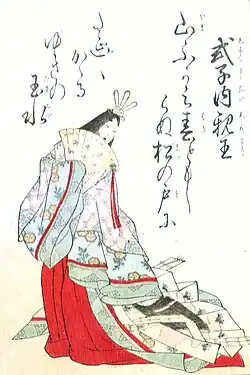 式子内親王
山ふかみ春ともし
らぬ松の戸に
たえ〴〵
かゝる
ゆきの
玉水